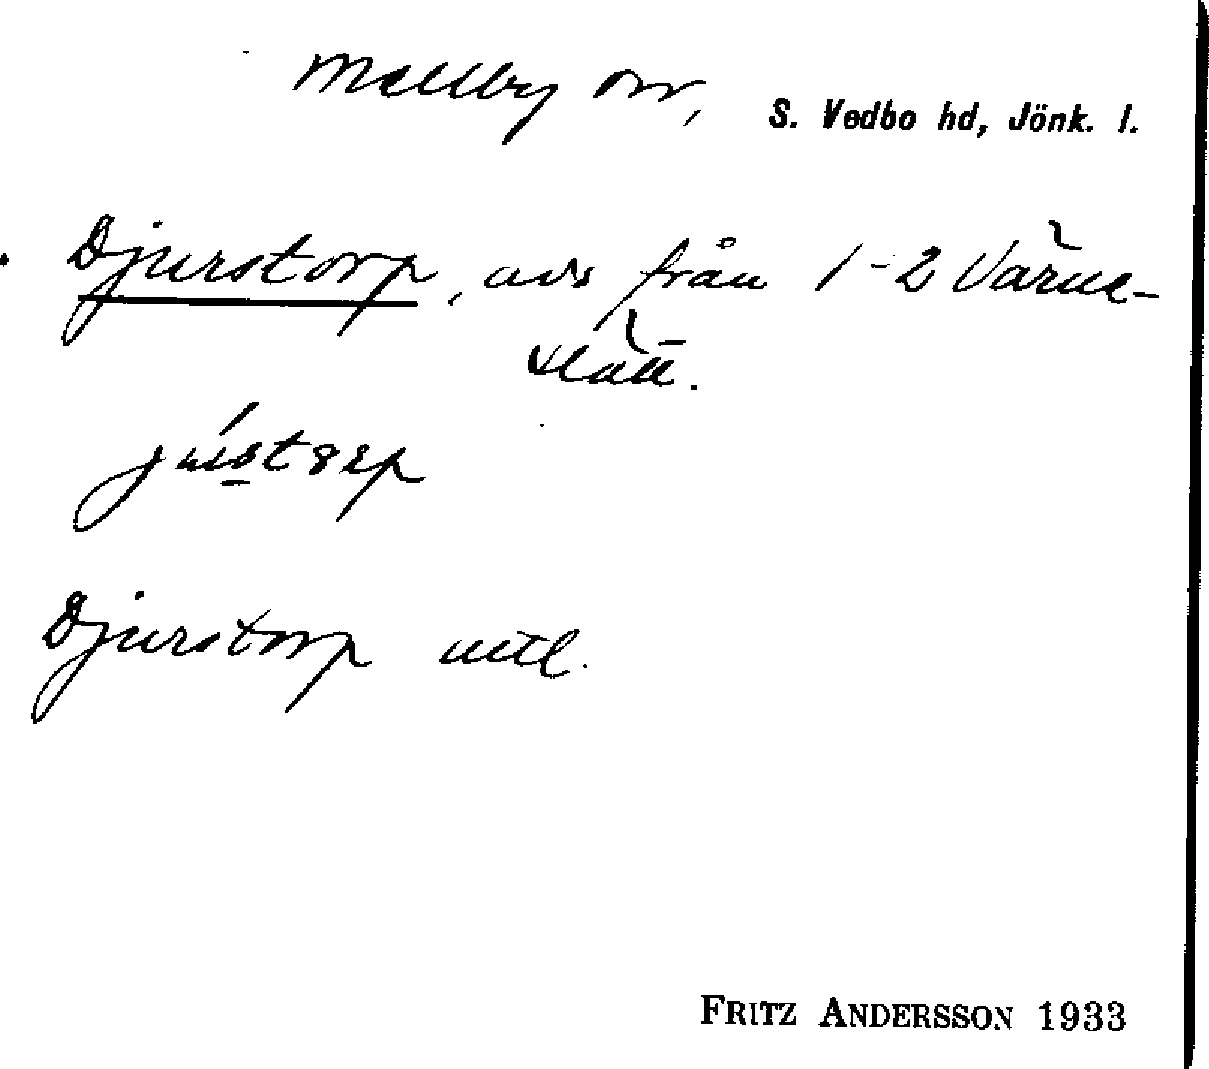 Mellby sn, S. Vedbo hd, Jönk. l.
Djurstorp, avs från 1-2 Värne-
slätt.
Djurstorp mtl.
FRITZ ANDERSSON 1933